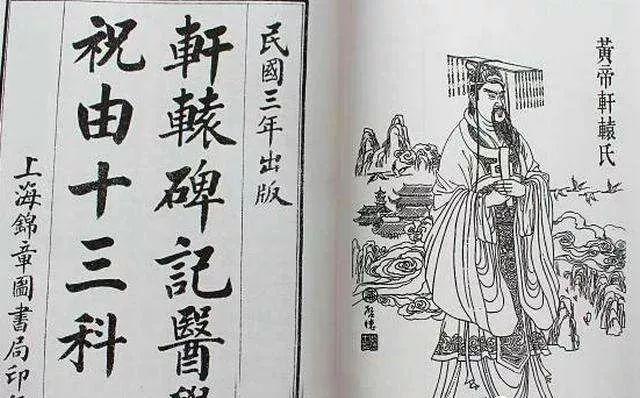 民國三年出版
軒轅碑記醫學
祝由十三科
上海錦章圖書局印
黃帝軒轅氏